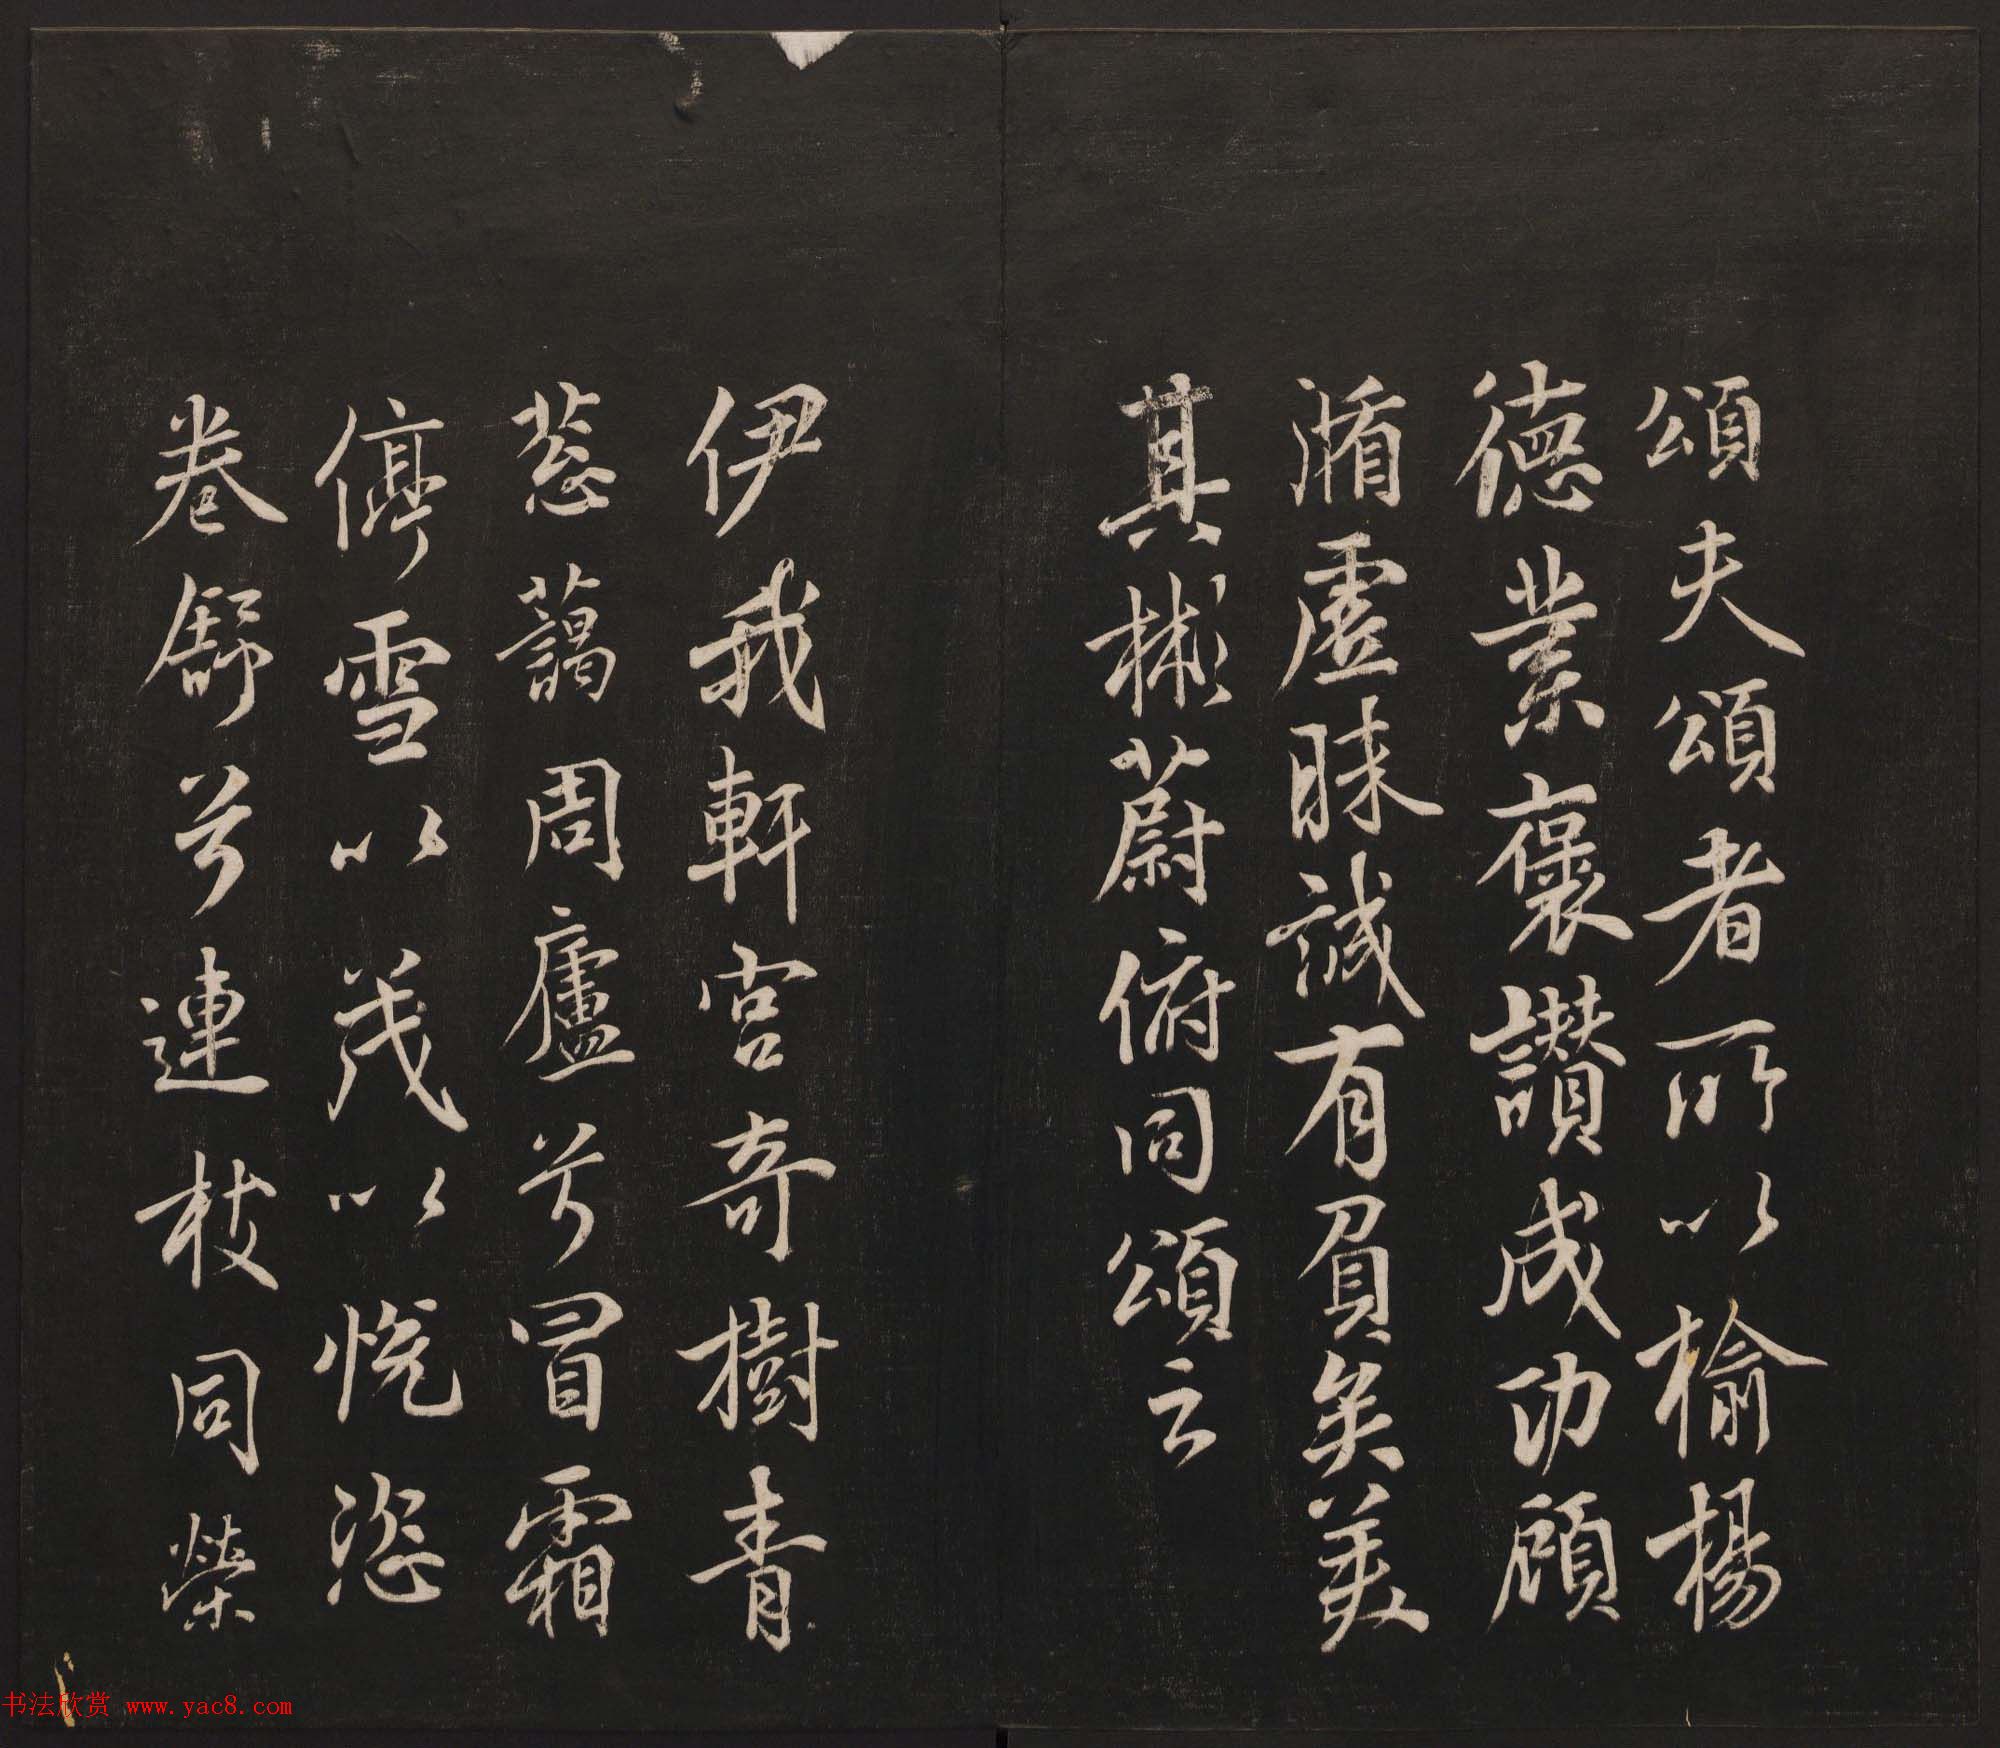 頌夫頌者所以榆楊
德業褒讚成功顧
循虛昧誠有負矣美
其彬蔚俯同頌云
伊我軒宮奇樹青
蔥藹周廬兮冒霜
停雪以茂以悅恣
卷舒兮連枝同榮
书法欣赏 www.yac8.com